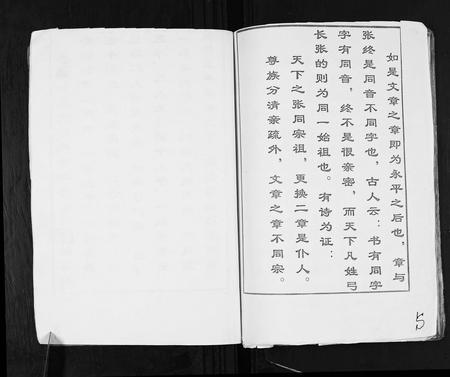 如是文章之章即为永平之后也，章与
张终是同音不同字也，古人云：书有同字
字有同音，终不是很亲密，而天下凡姓弓
长张的则为同一始祖也。有诗为证：
天下之张同宗祖，更换二章是仆人。
尊族分清亲疏外，文章之章不同宗。
5